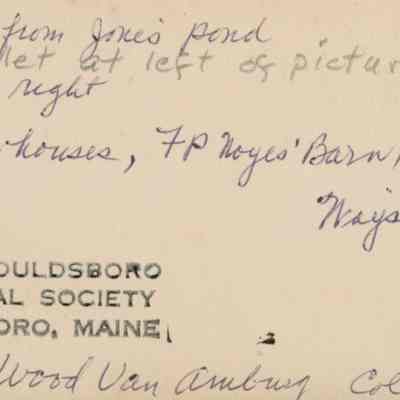 from Jones pond
let at left of pictur
right
houses, FP Noyes' Barn,
Ways
OULDSBORO
AL SOCIETY
ORO, MAINE
Wood Van Amburg Col